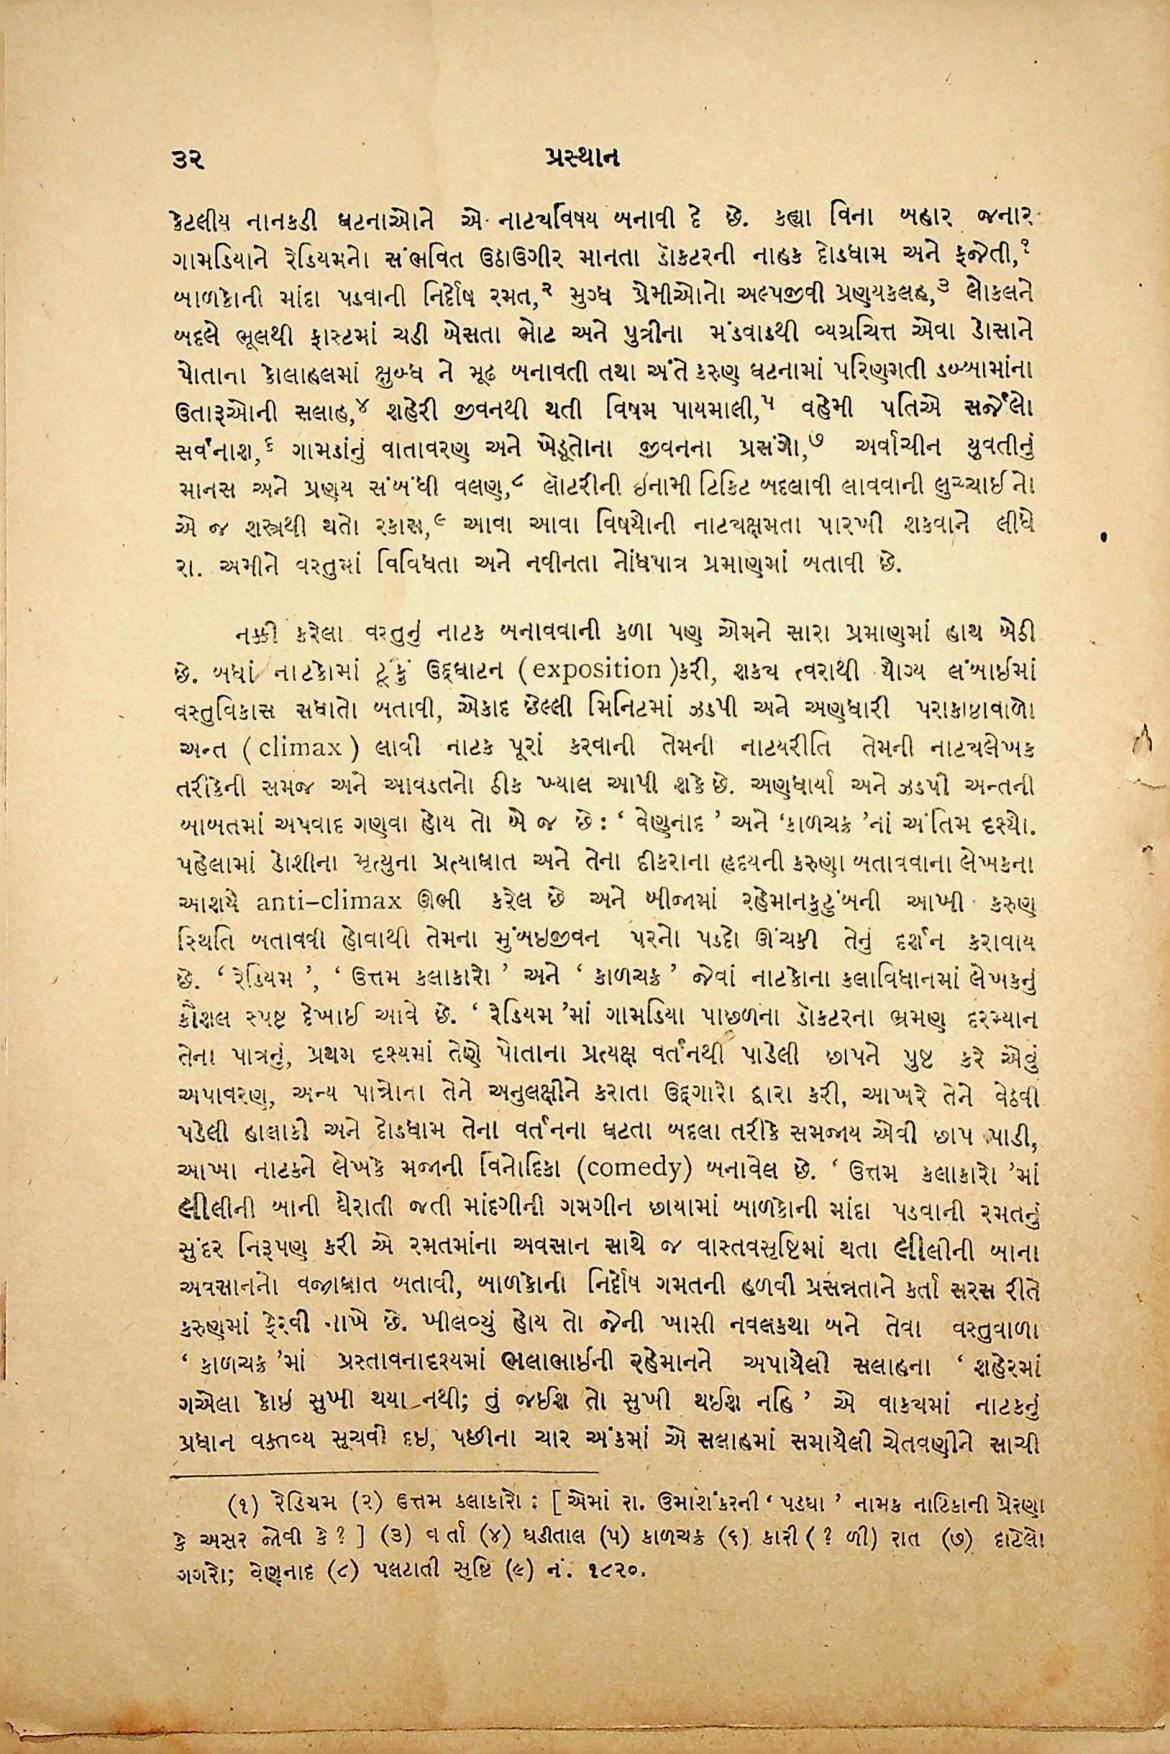 ૩૨
પ્રસ્થાન
કેટલીય નાનકડી ઘટનાઓને એ નાટ્યવિષય બનાવી દે છે. કહ્યા વિના બહાર જનાર
ગામડિયાને રેડિયમનો સંભવિત ઉઠાઉગીર માનતા ડૉક્ટરની નાહક દોડધામ અને ફજેતી,૧
બાળકોની માંદા પડવાની નિર્દોષ રમત,૨ મુગ્ધ પ્રેમીઓનો અલ્પજીવી પ્રણયકલહ,૩ લોકલને
બદલે ભૂલથી ફાસ્ટમાં ચડી બેસતા ભોટ અને પુત્રીના મંદવાડથી વ્યગ્રચિત્ત એવા ડોસાને
પોતાના કોલાહલમાં ક્ષુબ્ધ ને મૂઢ બનાવતી તથા અંતે કરુણ ઘટનામાં પરિણમતી ડબ્બામાંના
ઉતારૂઓની સલાહ,૪ શહેરી જીવનથી થતી વિષમ પાયમાલી,૫ વહેમી પતિએ સર્જેલો
સર્વનાશ,૬ ગામડાંનું વાતાવરણ અને ખેડૂતોના જીવનના પ્રસંગો,૭ અર્વાચીન યુવતીનું
માનસ અને પ્રણય સંબંધી વલણ,૮ લૉટરીની ઇનામી ટિકિટ બદલાવી લાવવાની લુચ્ચાઈનો
એ જ શસ્ત્રથી થતો રકાસ,૯ આવા આવા વિષયોની નાટ્યક્ષમતા પારખી શકવાને લીધે
રા. અમીને વસ્તુમાં વિવિધતા અને નવીનતા નોંધપાત્ર પ્રમાણમાં બતાવી છે.
નક્કી કરેલા વસ્તુનું નાટક બનાવવાની કળા પણ એમને સારા પ્રમાણમાં હાથ બેઠી
છે. બધાં નાટકોમાં ટૂંકું ઉદ્ઘાટન (exposition )કરી, શક્ય ત્વરાથી યોગ્ય લંબાઈમાં
વસ્તુવિકાસ સધાતો બતાવી, એકાદ છેલ્લી મિનિટમાં ઝડપી અને અણધારી પરાકાષ્ઠાવાળો
અન્ત (climax) લાવી નાટક પૂરાં કરવાની તેમની નાટયરીતિ તેમની નાટ્યલેખક
તરીકેની સમજ અને આવડતનો ઠીક ખ્યાલ આપી શકે છે. અણધાર્યા અને ઝડપી અન્તની
બાબતમાં અપવાદ ગણવા હોય તો બે જ છે: ‘ વેણુનાદ ’ અને ‘કાળચક્ર ’નાં અંતિમ દૃશ્યો.
પહેલામાં ડોશીના મૃત્યુના પ્રત્યાઘાત અને તેના દીકરાના હૃદયની કરુણા બતાવવાના લેખકના
આશયે anti–climax ઊભી કરેલ છે અને બીજામાં રહેમાનકુટુંબની આખી કરુણ
સ્થિતિ બતાવવી હોવાથી તેમના મુંબઇજીવન પરનો પડદો ઊંચકી તેનું દર્શન કરાવાય
છે. ‘ રેડિયમ ’, ‘ ઉત્તમ કલાકારો ’ અને ‘ કાળચક્ર ’ જેવાં નાટકોના કલાવિધાનમાં લેખકનું
કૌશલ સ્પષ્ટ દેખાઈ આવે છે. ‘ રેડિયમ ’માં ગામડિયા પાછળના ડૉક્ટરના ભ્રમણ દરમ્યાન
તેના પાત્રનું, પ્રથમ દૃશ્યમાં તેણે પોતાના પ્રત્યક્ષ વર્તનથી પાડેલી છાપને પુષ્ટ કરે એવું
અપાવરણ, અન્ય પાત્રોના તેને અનુલક્ષીને કરાતા ઉદ્ગારો દ્વારા કરી, આખરે તેને વેઠવી
પડેલી હાલાકી અને દોડધામ તેના વર્તનના ઘટતા બદલા તરીકે સમજાય એવી છાપ પાડી,
આખા નાટકને લેખકે મજાની વિનોદિકા (comedy) બનાવેલ છે. ‘ ઉત્તમ કલાકારો ’માં
લીલીની બાની ઘેરાતી જતી માંદગીની ગમગીન છાયામાં બાળકોની માંદા પડવાની રમતનું
સુંદર નિરૂપણ કરી એ રમતમાંના અવસાન સાથે જ વાસ્તવસૃષ્ટિમાં થતા લીલીની બાના
અવસાનનો વજ્રાઘાત બતાવી, બાળકોની નિર્દોષ ગમતની હળવી પ્રસન્નતાને કર્તા સરસ રીતે
કરુણમાં ફેરવી નાખે છે. ખીલવ્યું હોય તો જેની ખાસી નવલકથા બને તેવા વસ્તુવાળા
‘ કાળચક્ર ’માં પ્રસ્તાવનાદૃશ્યમાં ભલાભાઇની રહેમાનને અપાયેલી સલાહના ‘ શહેરમાં
ગએલા કોઇ સુખી થયા નથી; તું જઈશ તો સુખી થઈશ નહિ ’ એ વાક્યમાં નાટકનું
પ્રધાન વક્તવ્ય સૂચવી દઇ, પછીના ચાર અંકમાં એ સલાહમાં સમાયેલી ચેતવણીને સાચી
(૧) રેડિયમ (૨) ઉત્તમ કલાકારો : [ એમાં રા. ઉમાશંકરની ‘ પડઘા ’ નામક નાટિકાની પ્રેરણા
કે અસર જોવી કે ? ] (૩) વર્તા (૪) ઘડીતાલ (૫) કાળચક્ર (૬) કારી ( ? ળી) રાત (૭) દાટેલો
ગગરો; વેણુનાદ (૮) પલટાતી સૃષ્ટિ (૯) નં. ૧૮૨૦.